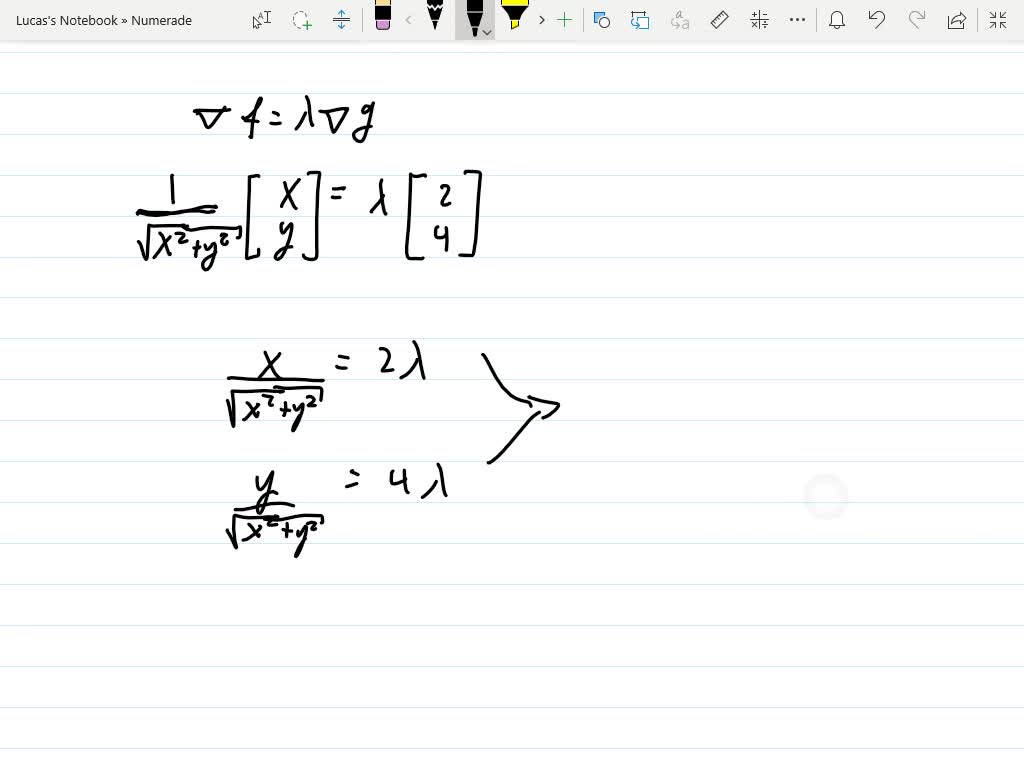 Lucas's Notebook » Numerade
∇f = λ∇g
1/√(x²+y²) [x y] = λ [2 4]
x/√(x²+y²) = 2λ
y/√(x²+y²) = 4λ